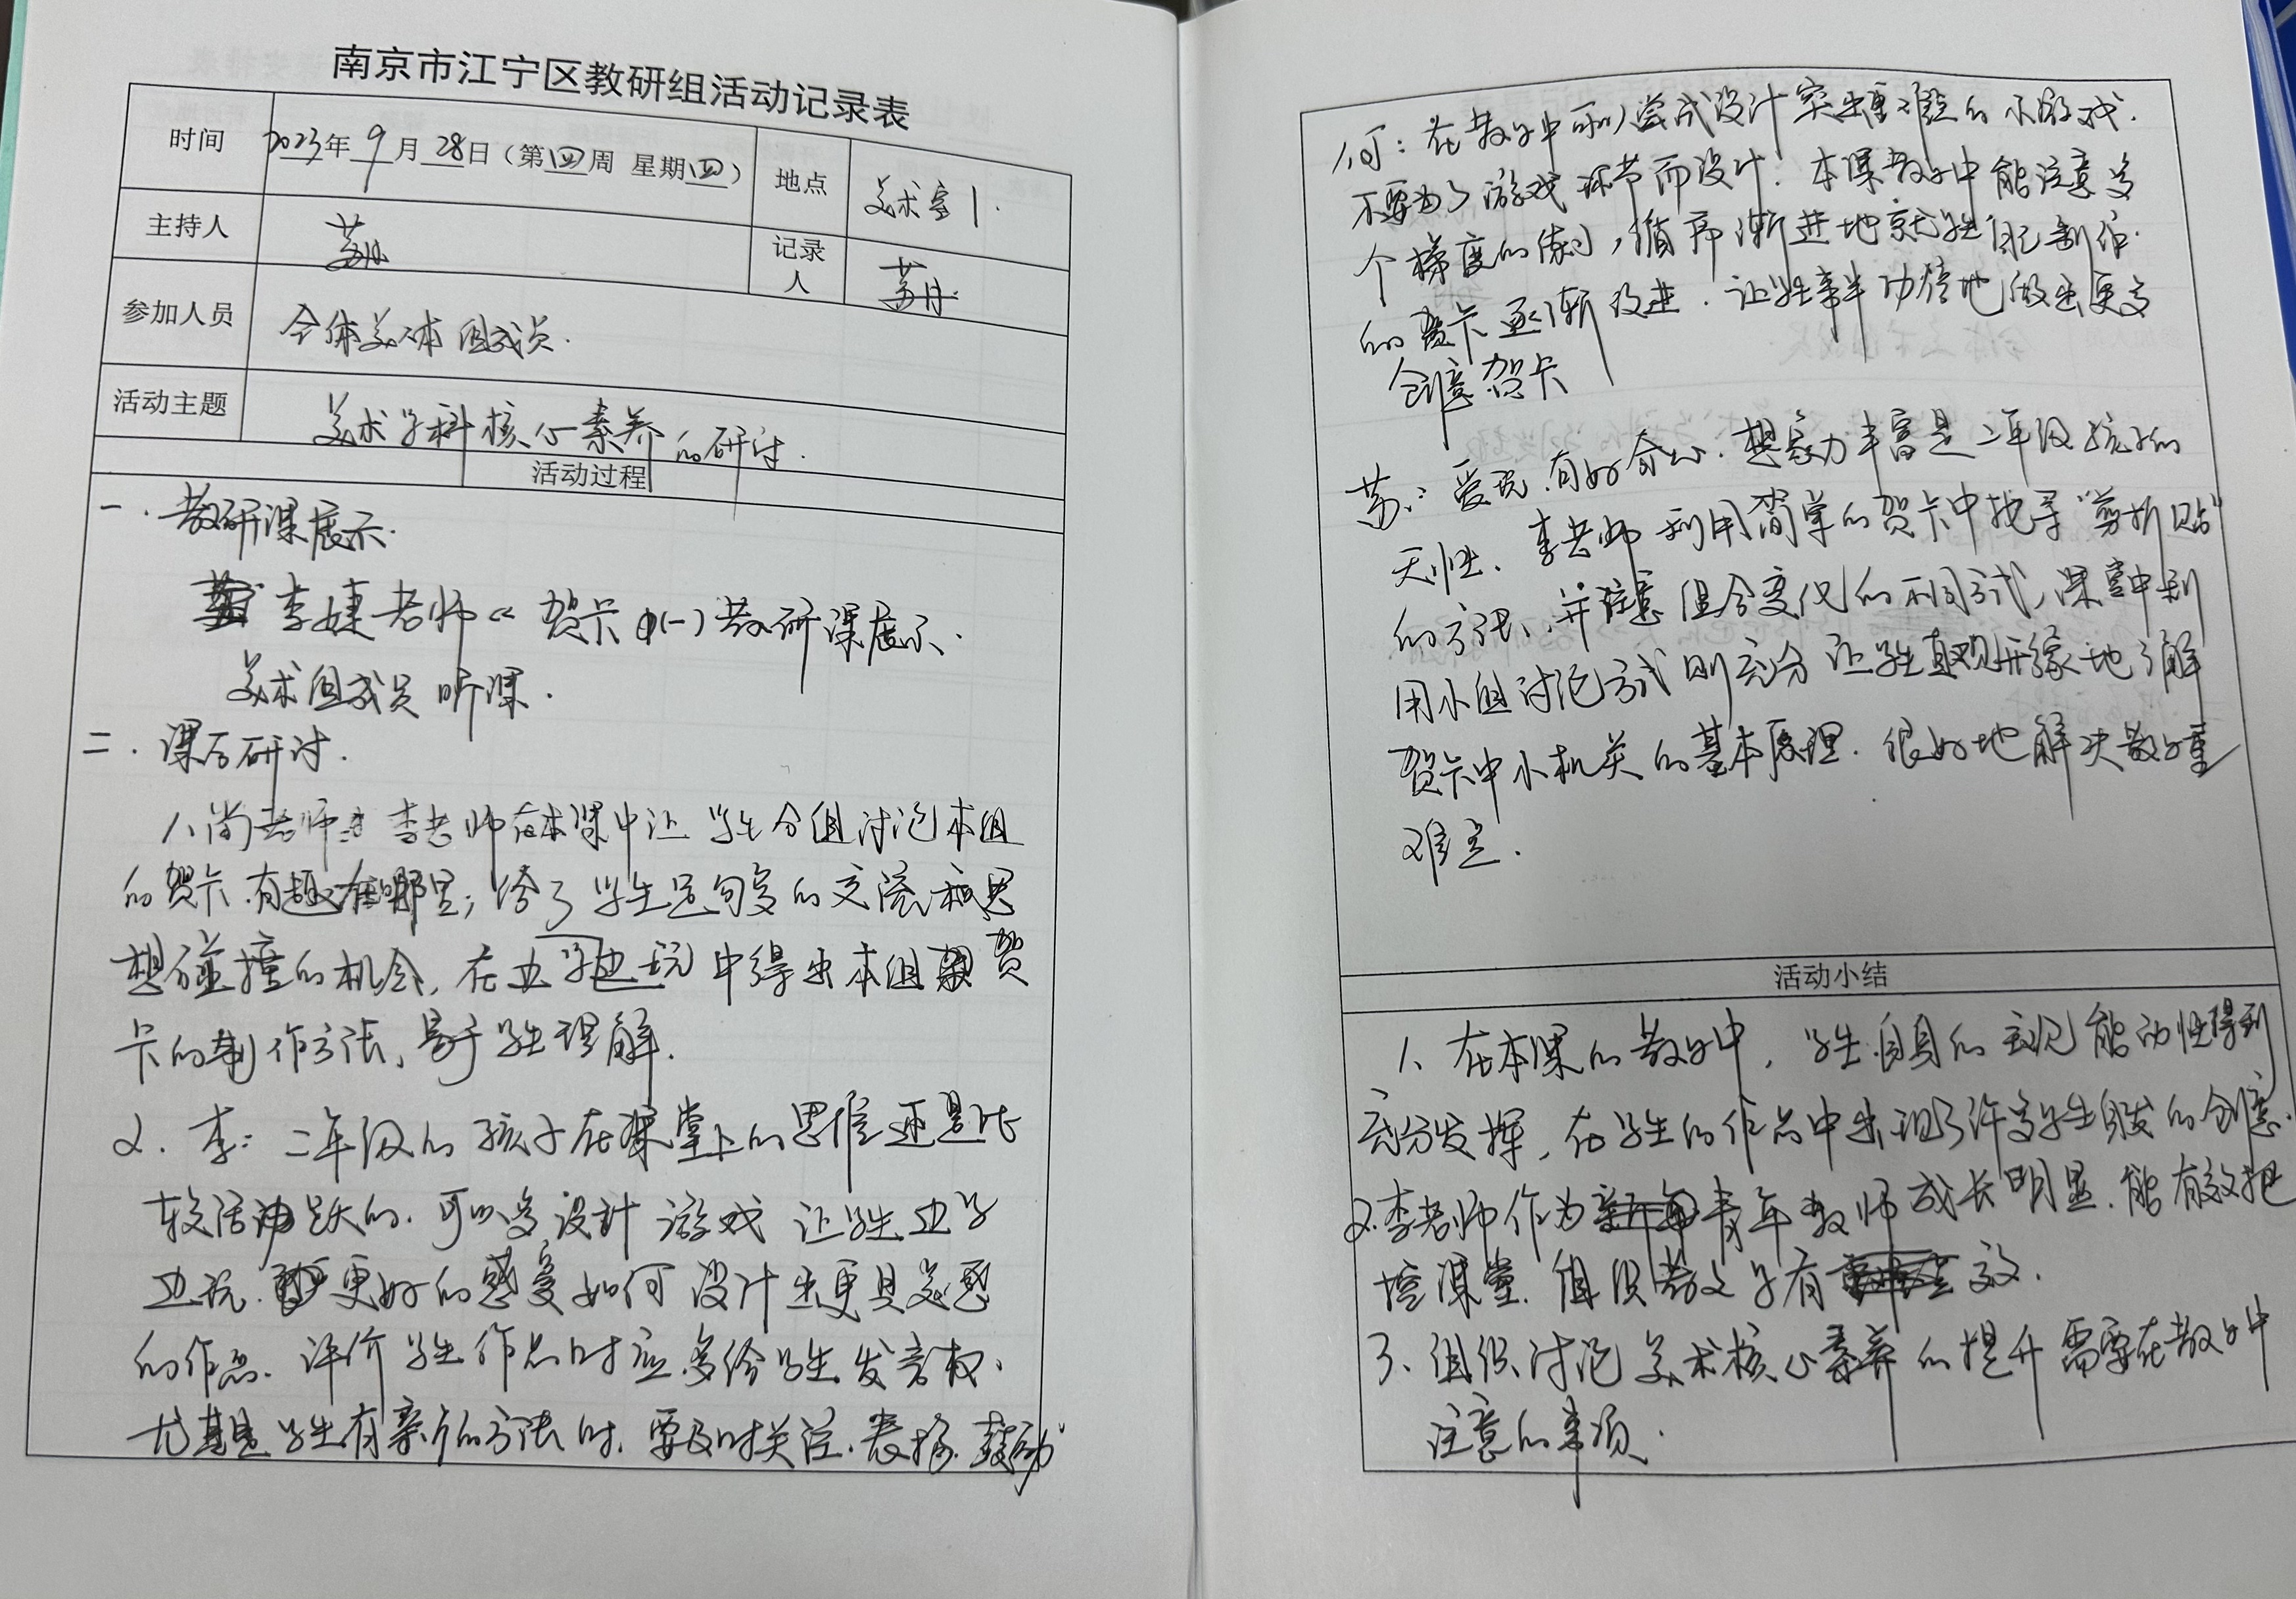 南京市江宁区教研组活动记录表
时间 2023年9月28日（第四周 星期四） 地点 美术室1.
主持人 记录人
参加人员 全体美术组成员.
活动主题 美术学科核心素养的研讨.
活动过程
一.教研课展示.
李婕老师《贺卡(一)教研课展示.
美术组成员听课.
二.课后研讨.
1、尚老师:李老师在本课中让学生分组讨论本组
的贺卡有趣在哪里;给了学生足够多的交流和思
想碰撞的机会,在边学边玩中得出本组贺
卡的制作方法,易于学生理解.
2.李:二年级的孩子在课堂上的思维还是比
较活跃的.可以多设计游戏让学生边学
边玩.更好的感受如何设计出更具美感
的作品.评价学生作品时应多给学生发言权、
尤其是学生有新的方法时.要及时关注.表扬.鼓励
何:在教学中可以尝试设计突出重难点的小游戏.
不要为了游戏环节而设计.本课教学中能注意多
个梯度的,循序渐进地就学生自己制作
的贺卡逐渐改进.让学生事半功倍地做出更多
创意贺卡
苏:爱玩.有好奇心.想象力丰富是二年级孩子的
天性、李老师利用简单的贺卡中找寻"剪折贴"
的方法、并注意组合变化的不同方式,课堂中利
用小组讨论方式则充分让学生直观形象地了解
贺卡中小机关的基本原理.很好地解决教学重
难点.
活动小结
1、在本课的教学中,学生自身的主观能动性得到
充分发挥,在学生的作品中出现了许多学生自发的创意.
2.李老师作为青年教师成长明显.能有效把
控课堂.组织教学有效.
3、组织讨论美术核心素养的提升需要在教学中
注意的事项.